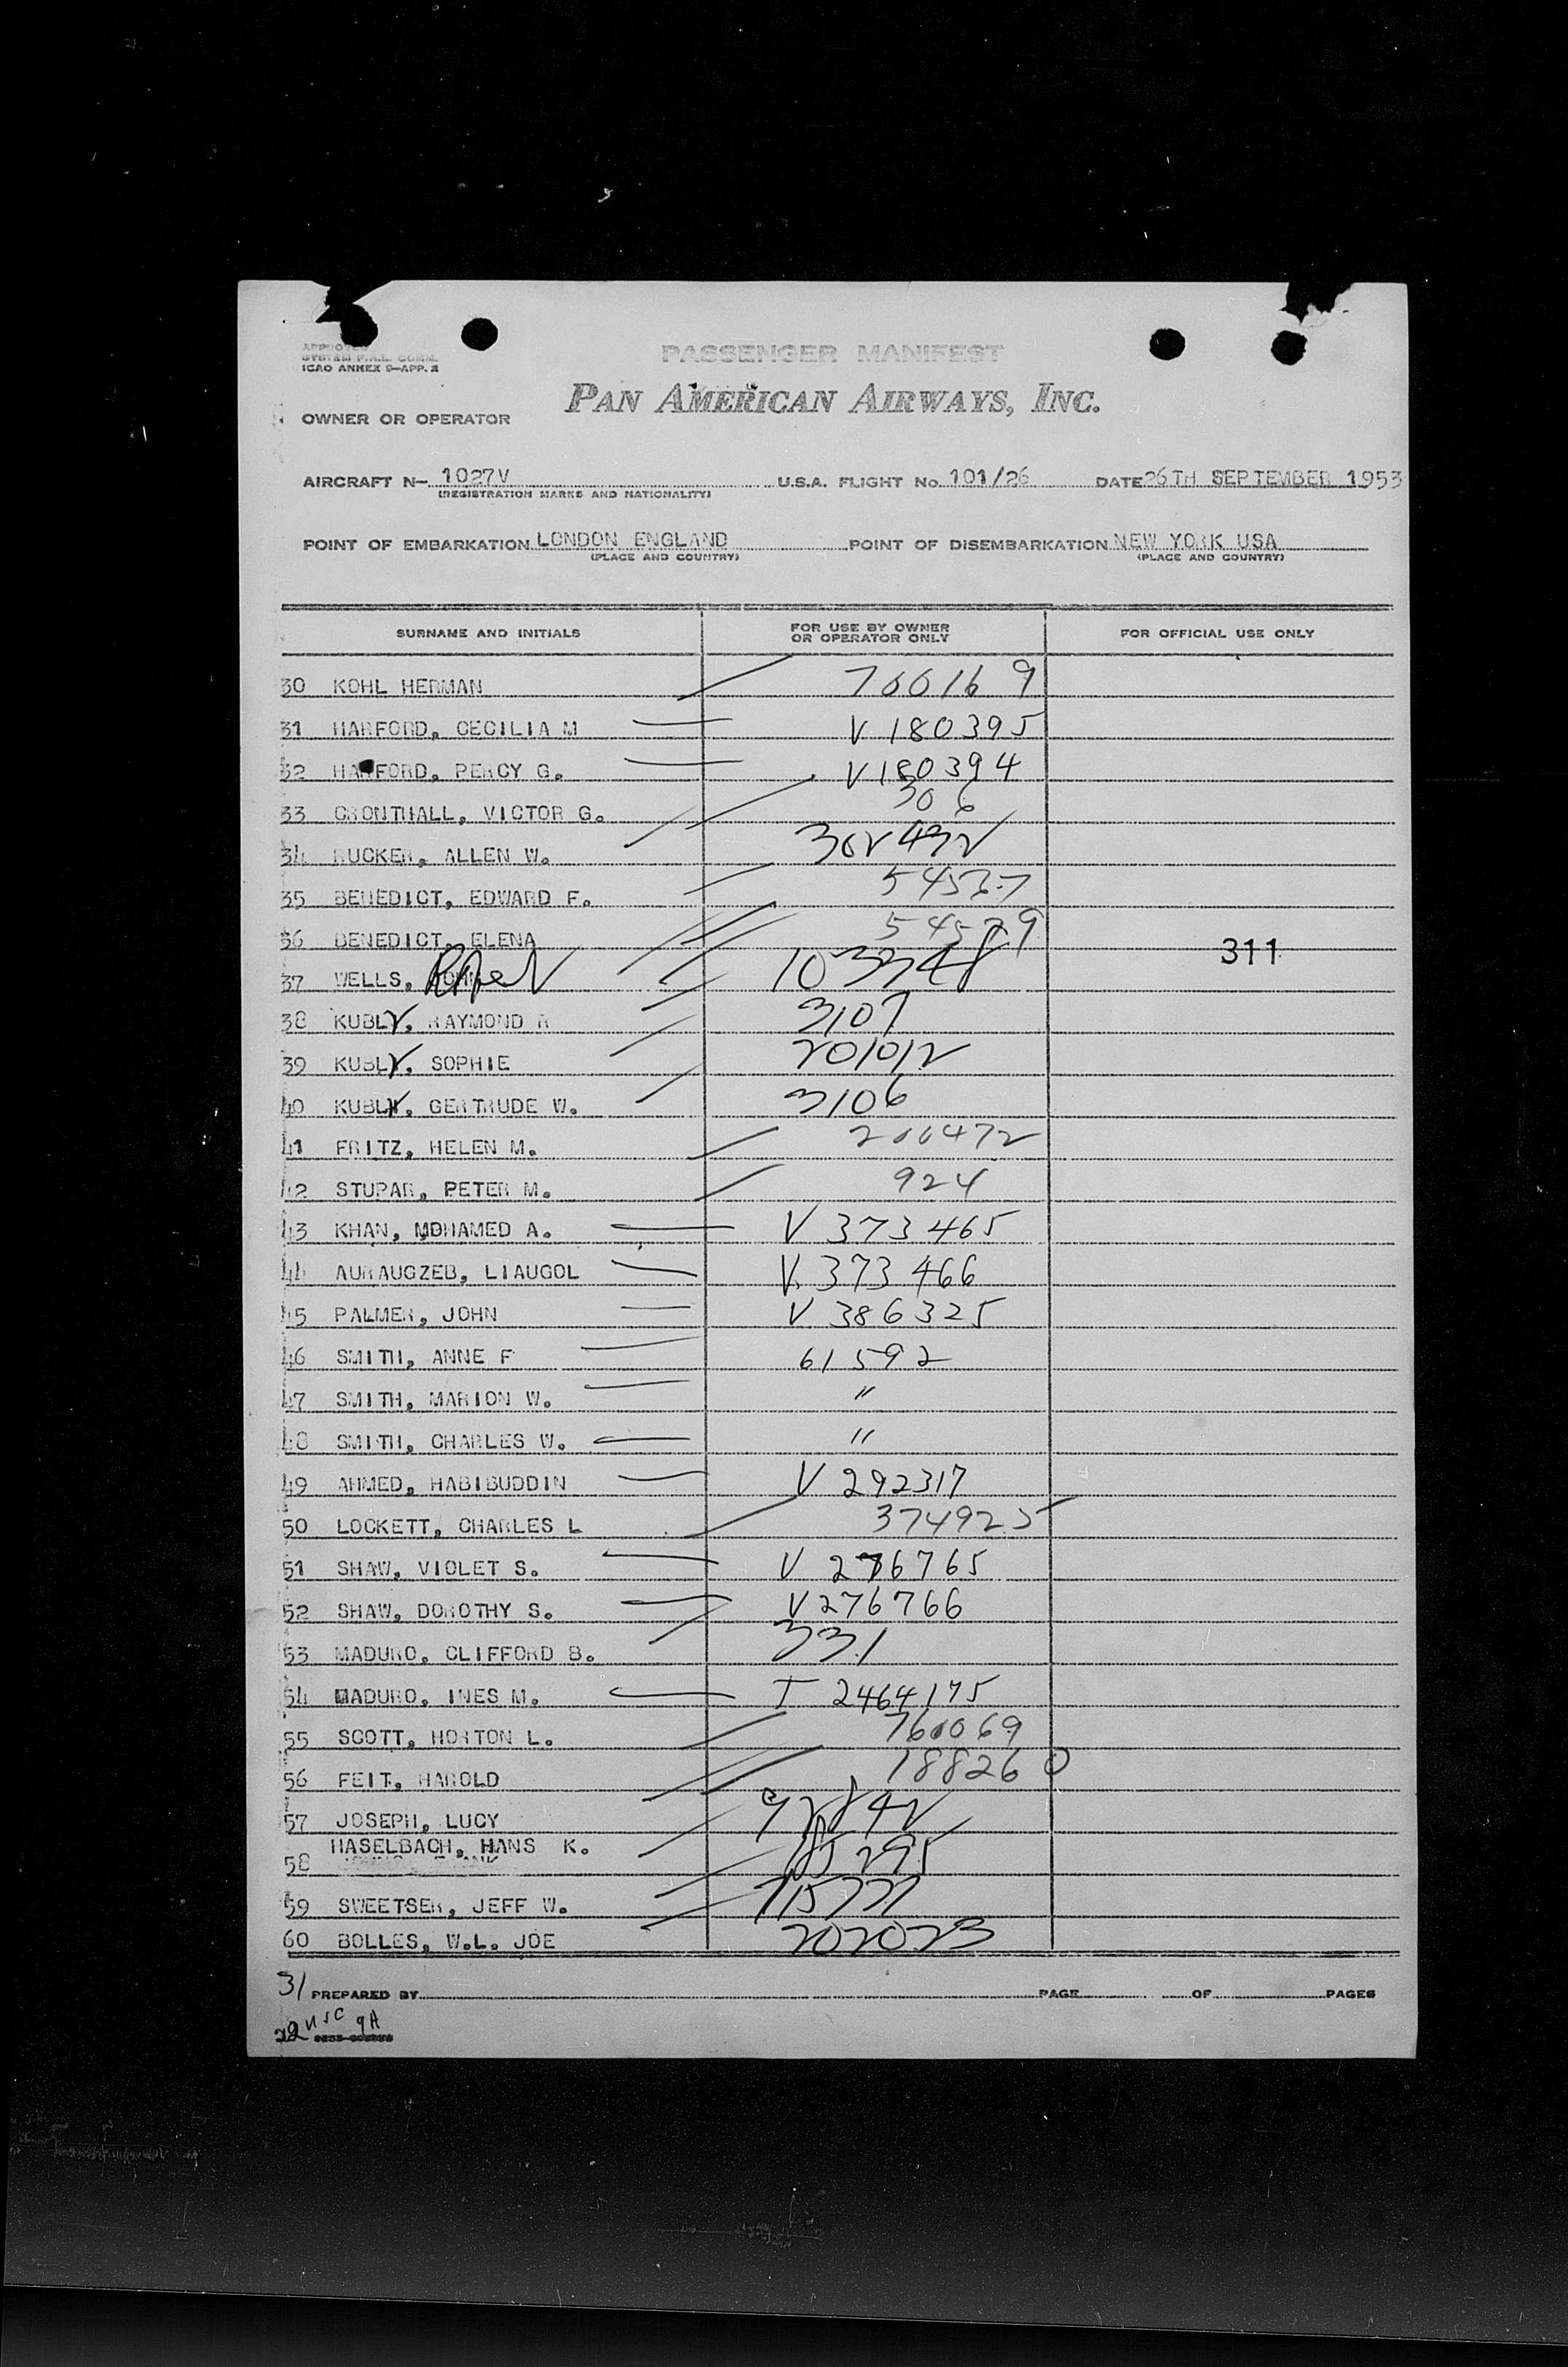 APPROVED
SYSTEM F.A.L. COMM.
ICAO ANNEX 9—APP. 2
PASSENGER MANIFEST
PAN AMERICAN AIRWAYS, INC.
OWNER OR OPERATOR
AIRCRAFT N— 1027V U.S.A. FLIGHT No. 101/26 DATE 26TH SEPTEMBER 1953
(REGISTRATION MARKS AND NATIONALITY)
POINT OF EMBARKATION LONDON ENGLAND POINT OF DISEMBARKATION NEW YORK USA
(PLACE AND COUNTRY) (PLACE AND COUNTRY)
SURNAME AND INITIALS FOR USE BY OWNER OR OPERATOR ONLY FOR OFFICIAL USE ONLY
30 KOHL HERMAN 700169
31 HARFORD, CECILIA M V 180395
32 HARFORD, PERCY G. V180394
33 CRONTHALL, VICTOR G. 306
34 RUCKER, ALLEN W.
35 BENEDICT, EDWARD F.
36 BENEDICT, ELENA
311
37 WELLS, 103348
38 KUBLY, RAYMOND R 3107
39 KUBLY, SOPHIE 201012
40 KUBLY, GERTRUDE W. 3106
41 FRITZ, HELEN M. 200472
42 STUPAR, PETER M. 924
43 KHAN, MOHAMED A. V 373465
44 AURAUGZEB, LIAUGOL V 373466
45 PALMER, JOHN V 386325
46 SMITH, ANNE F 61592
47 SMITH, MARION W. "
48 SMITH, CHARLES W. "
49 AHMED, HABIBUDDIN V 292317
50 LOCKETT, CHARLES L 374925
51 SHAW, VIOLET S. V 276765
52 SHAW, DOROTHY S. V276766
53 MADURO, CLIFFORD B. 331
54 MADURO, INES M. T 2464175
55 SCOTT, HORTON L. 760069
56 FEIT, HAROLD 188260
57 JOSEPH, LUCY
58 HASELBACH, HANS K.
59 SWEETSER, JEFF W. 715777
60 BOLLES, W.L. JOE 202023
31 PREPARED BY PAGE OF PAGES
22 USC 9A